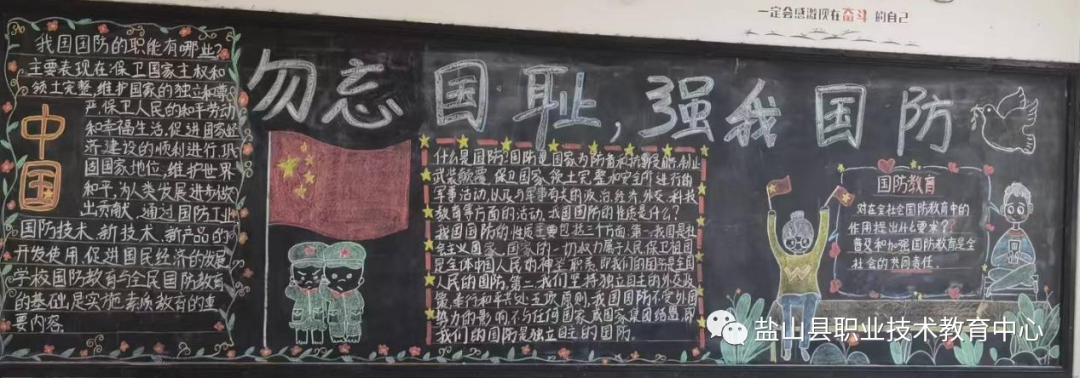 一定会感激现在奋斗的自己
勿忘国耻，强我国防
我国国防的职能有哪些？
主要表现在保卫国家主权和
领土完整，维护国家的独立和尊
严，保卫人民的和平劳动
和幸福生活，促进国家经
济建设的顺利进行，巩
固国家地位，维护世界
和平，为人类发展进步做
出贡献，通过国防工业
国防技术、新技术、新产品的
开发使用，促进国民经济的发展
学校国防教育与全民国防教育
的基础，是实施素质教育的重
要内容。
中国
什么是国防？国防是国家为防备和抵抗侵略，制止
武装颠覆，保卫国家领土完整和安全所进行的
军事活动，以及与军事有关的政治、经济、外交、科技
教育等方面的活动。我国国防的性质是什么？
我国国防的性质主要包括三个方面：第一我国是社
会主义国家，国家的一切权力属于人民，保卫祖国
是全体中国人民的神圣职责，即我们的国防是全国
人民的国防。第二我们坚持独立自主的外交政
策，奉行和平共处五项原则，我国国防不受外国
势力的影响，不与任何国家或国家集团结盟，即
我们的国防是独立自主的国防。
国防教育
对在全社会国防教育中的
作用提出什么要求？
普及和加强国防教育是全
社会的共同责任。
盐山县职业技术教育中心